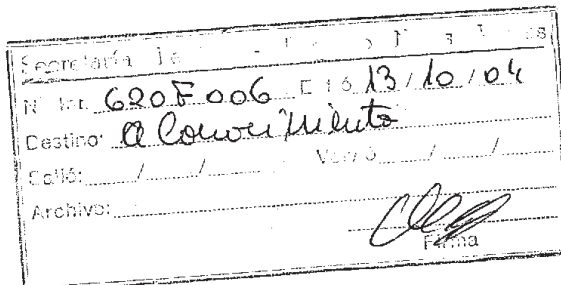 Secretaría
Nº Int. 620F006 E 13/10/04
Destino: a Conocimiento
Salió: / / Volvió / /
Archivo:
Firma